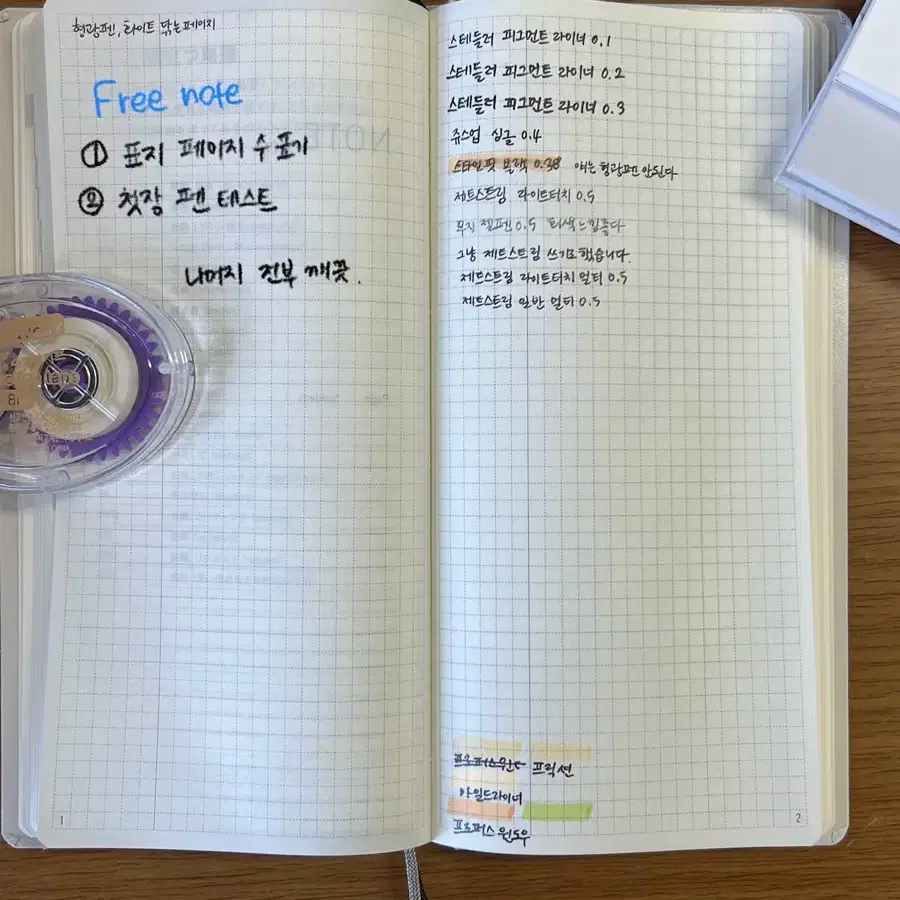 형광펜, 화이트 닦는 페이지
Free note
① 표지 페이지 수 표기
② 첫장 펜 테스트
나머지 전부 깨끗.
tape
1
스테들러 피그먼트 라이너 0.1
스테들러 피그먼트 라이너 0.2
스테들러 피그먼트 라이너 0.3
쥬스업 싱글 0.4
스타일핏 블랙 0.38 얘는 형광펜 안된다
제트스트림 라이트터치 0.5
무지 젤펜 0.5 회색느낌좋다
그냥 제트스트림 쓰기로 했습니다.
제트스트림 라이트터치 멀티 0.5
제트스트림 일반 멀티 0.5
프릭션
마일드라이너
프로퍼스 윈도우
2